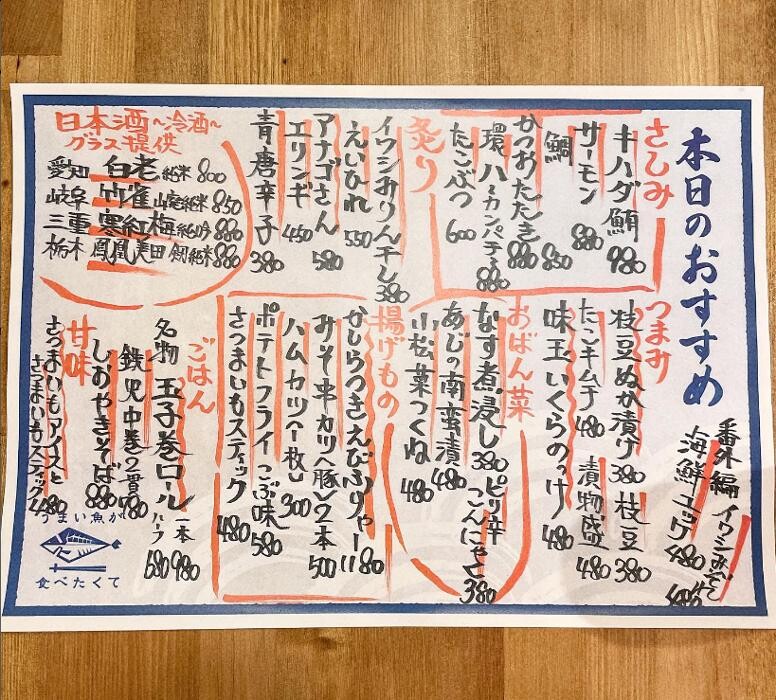 本日のおすすめ
さしみ
キハダ鮪 980
サーモン 880
鯛 850
かつおたたき 880
環八(カンパチ) 880
たこぶつ 600
炙り
イワシみりん干し 380
えいひれ 550
アナゴさん 580
エリンギ 450
青唐辛子 380
日本酒〜冷酒〜
グラス提供
愛知 白老 純米 800
岐阜 竹雀 山廃純米 850
三重 寒紅梅 純吟 880
栃木 鳳凰美田 純米 880
番外編
海鮮ユッケ 480
つまみ
枝豆ぬか漬け 380
枝豆 380
たこキムチ 480
漬物盛 480
味玉いくらのっけ 480
おばん菜
なす煮浸し 380
ピリ辛こんにゃく 380
あじの南蛮漬 480
小松菜つくね 480
揚げもの
かしらつきえびふりゃー 1180
みそ串カツ(豚)2本 500
ハムカツ(一枚) 300
ポテトフライ こぶ味 580
さつまいもスティック 480
ごはん
名物 玉子巻ロール 一本 980
ハーフ 580
鉄児中巻 2貫 780
しおやきそば 880
甘味
さつまいもアイスと
さつまいもスティック 480
うまい魚が
食べたくて